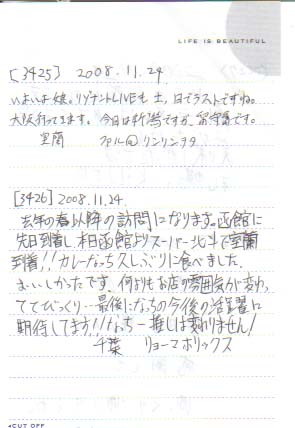 LIFE IS BEAUTIFUL
[3425] 2008.11.24
いよいよ娘。リゾナントLIVEも土,日でラストですね。
大阪行ってきます。今日は 当ですが、留守番です。
室蘭 @リンリンヲタ
[3426] 2008.11.24.
去年の春以降の訪問になります。函館に
先日到着し本日函館よりスーパー北斗で室蘭
到着!!カレーなっち久しぶりに食べました。
まいいしかったです。何よりもお店の雰囲気が変わっ
ててびっくり…最後になっちの今後の活躍に
期待してます!!なっち一推しは変わりません!
千葉 リョーマホリックス
CUT OFF